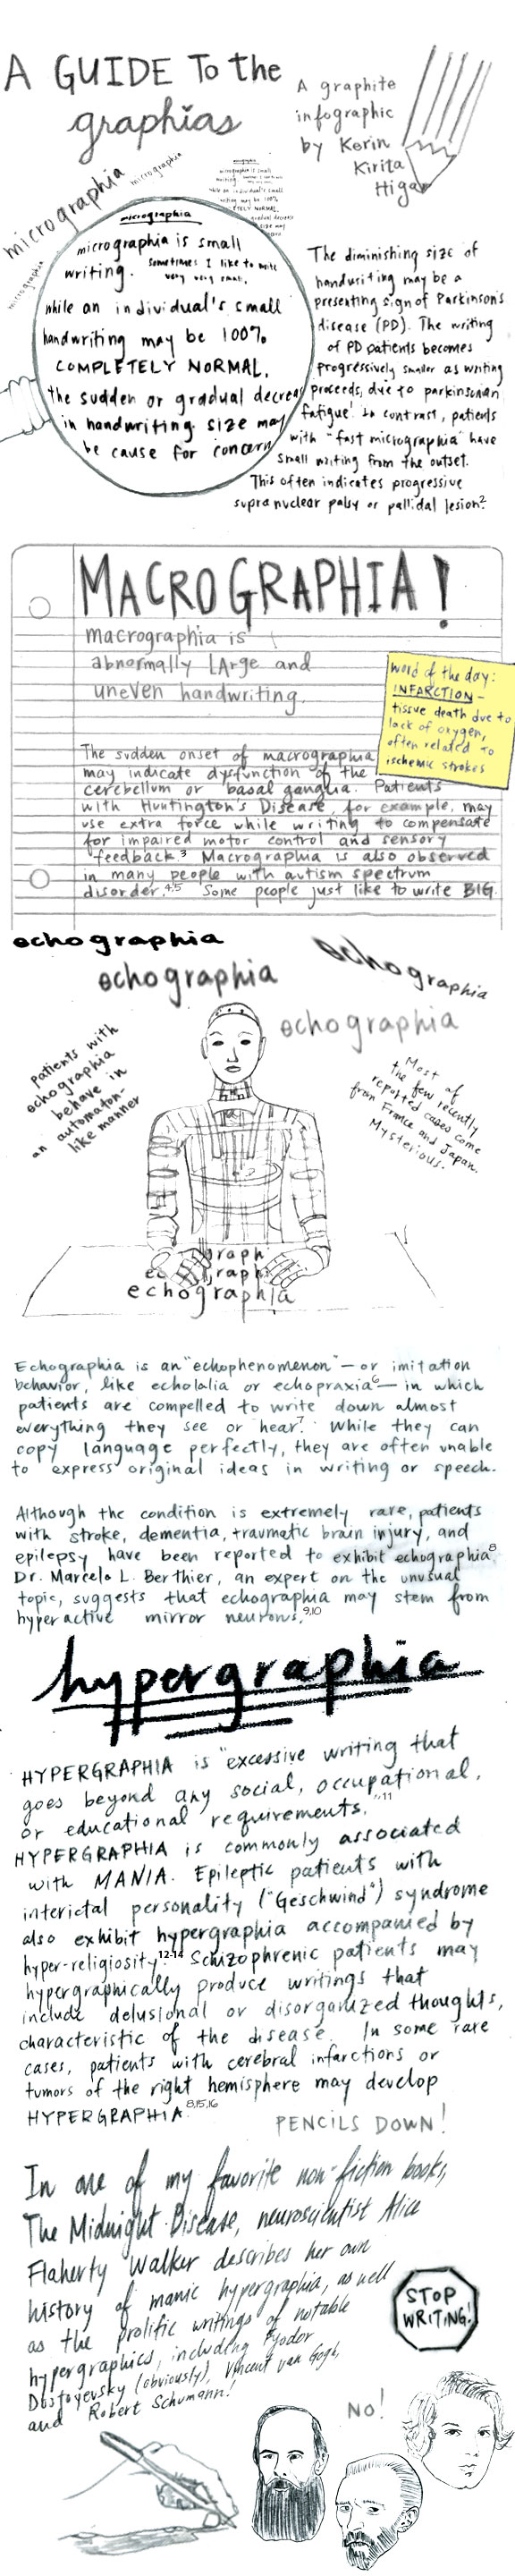 A GUIDE To the
graphias
A graphite
infographic
by Kerin
Kirita
Higa
micrographia
micrographia
micrographia
micrographia
micrographia is small
writing. sometimes I like to write
very very small.
while an individual's small
handwriting may be 100%
COMPLETELY NORMAL,
the sudden or gradual decrease
in handwriting size may
be cause for concern
The diminishing size of
handwriting may be a
presenting sign of Parkinson's
disease (PD). The writing
of PD patients becomes
progressively smaller as writing
proceeds, due to parkinsonian
fatigue.¹ In contrast, patients
with "fast micrographia" have
small writing from the outset.
This often indicates progressive
supranuclear palsy or pallidal lesion.²
MACROGRAPHIA!
macrographia is
abnormally LArge and
uneven handwriting.
word of the day:
INFARCTION -
tissue death due to
lack of oxygen,
often related to
ischemic strokes
The sudden onset of macrographia
may indicate dysfunction of the
cerebellum or basal ganglia. Patients
with Huntington's Disease, for example, may
use extra force while writing to compensate
for impaired motor control and sensory
feedback.³ Macrographia is also observed
in many people with autism spectrum
disorder.⁴,⁵ Some people just like to write BIG.
echographia
echographia
echographia
echographia
Patients with
echographia
behave in
an automaton-
like manner
Most of
the few recently
reported cases come
from France and Japan.
Mysterious.
graph
ec graph
echographia
Echographia is an "echophenomenon" — or imitation
behavior, like echolalia or echopraxia⁶ — in which
patients are compelled to write down almost
everything they see or hear.⁷ While they can
copy language perfectly, they are often unable
to express original ideas in writing or speech.
Although the condition is extremely rare, patients
with stroke, dementia, traumatic brain injury, and
epilepsy have been reported to exhibit echographia.⁸
Dr. Marcelo L. Berthier, an expert on the unusual
topic, suggests that echographia may stem from
hyperactive mirror neurons.⁹,¹⁰
hypergraphia
HYPERGRAPHIA is "excessive writing that
goes beyond any social, occupational,
or educational requirements."¹¹
HYPERGRAPHIA is commonly associated
with MANIA. Epileptic patients with
interictal personality ("Geschwind") syndrome
also exhibit hypergraphia accompanied by
hyper-religiosity.¹²⁻¹⁴ Schizophrenic patients may
hypergraphically produce writings that
include delusional or disorganized thoughts,
characteristic of the disease. In some rare
cases, patients with cerebral infarctions or
tumors of the right hemisphere may develop
HYPERGRAPHIA.⁸,¹⁵,¹⁶
PENCILS DOWN!
In one of my favorite non-fiction books,
The Midnight Disease, neuroscientist Alice
Flaherty Walker describes her own
history of manic hypergraphia, as well
as the prolific writings of notable
hypergraphics, including Fyodor
Dostoyevsky (obviously), Vincent van Gogh,
and Robert Schumann!
STOP
WRITING!
NO!